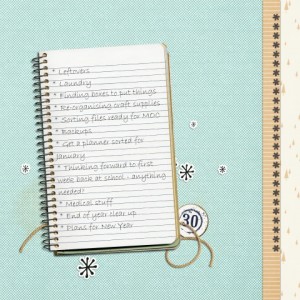 * Leftovers
* Laundry
* Finding boxes to put things
* Re-organising craft supplies
* Sorting files ready for MDC
* Backups
* Get a planner sorted for
January
* Thinking forward to first
week back at school - anything
needed!
* Medical stuff
* End of year clear up
* Plans for New Year
30